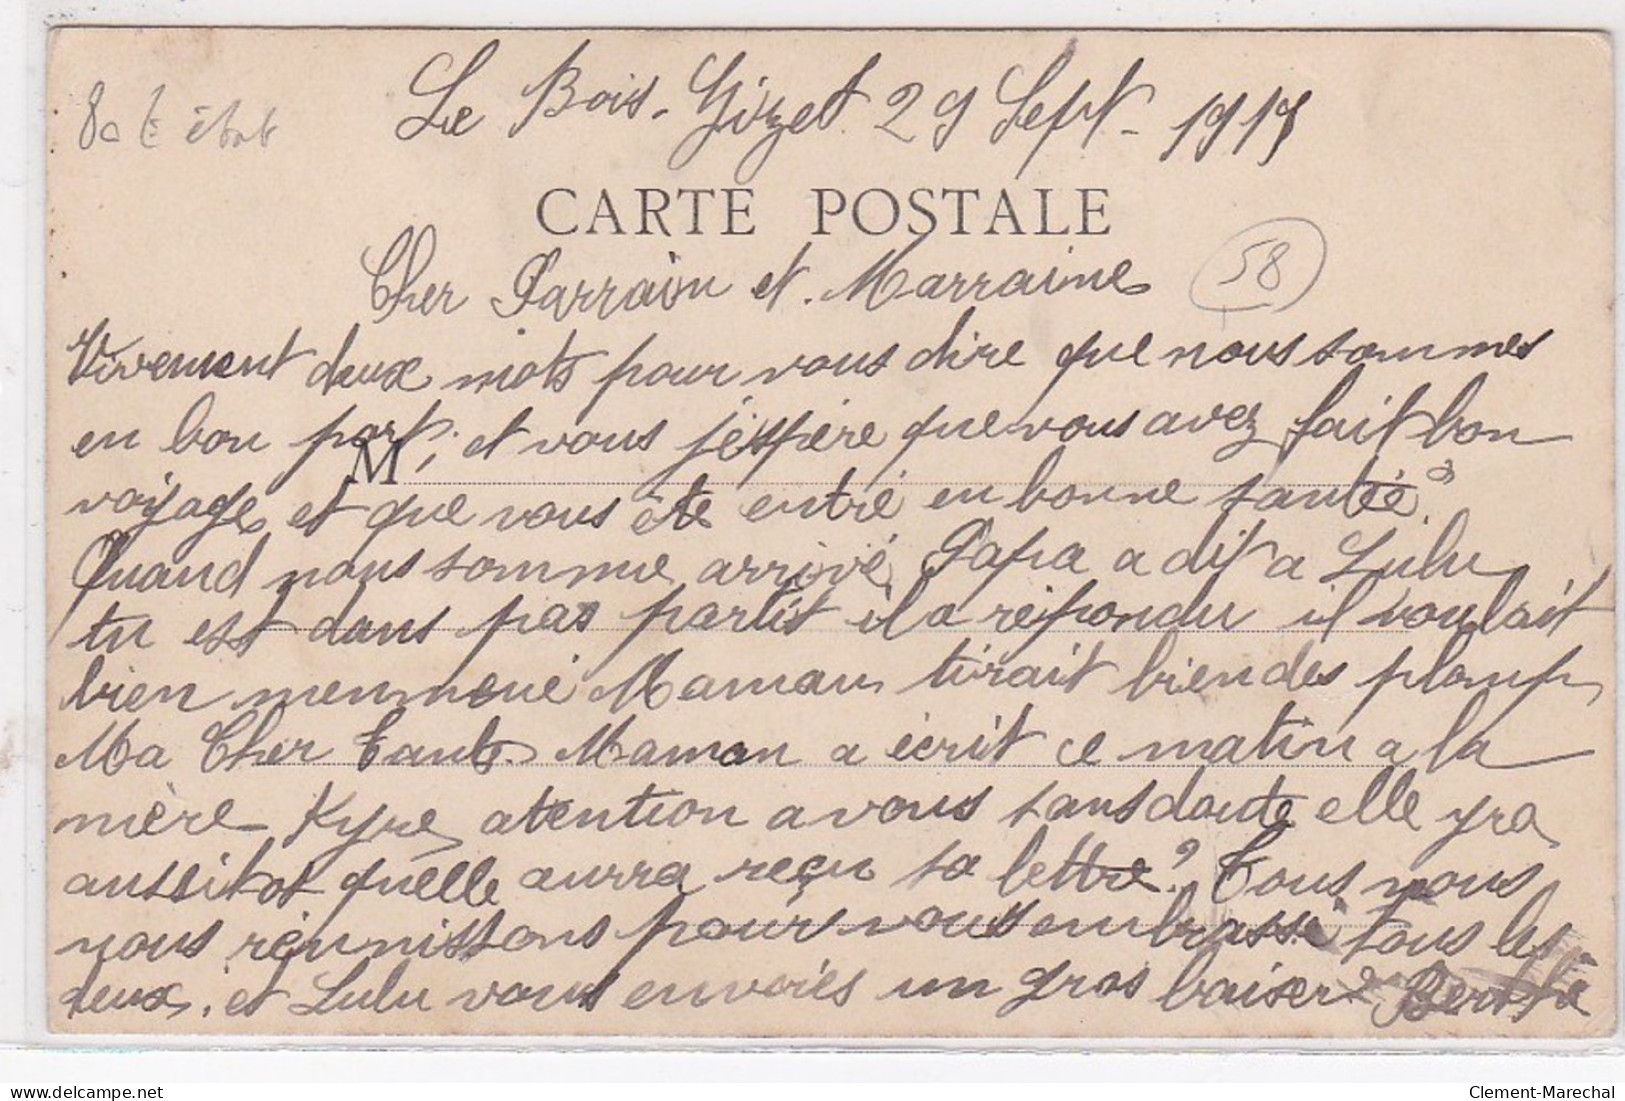 Le Bois-Gizet 29 Sept. 1917
8c t état
CARTE POSTALE
58
Cher Parrain et Marraine
Vivement deux mots pour vous dire que nous sommes
en bon port, et vous j'espère que vous avez fait bon
M
voyage, et que vous ête entré en bonne santée?
Quand nous somme arrivé Papa a dit a Lulu
tu est dans pas partit il a répondu il voulait
bien menmené Maman tirait bien des plomp
Ma Cher Tante Maman a écrit ce matin a la
mère Kyre atention a vous sans doute elle yra
aussitot quelle aurra reçu sa lettre? Tous nous
nous réunissons pour vous embrassé tous les
deux. et Lulu vous envoies un gros baiser Berthe
Clement-Marechal